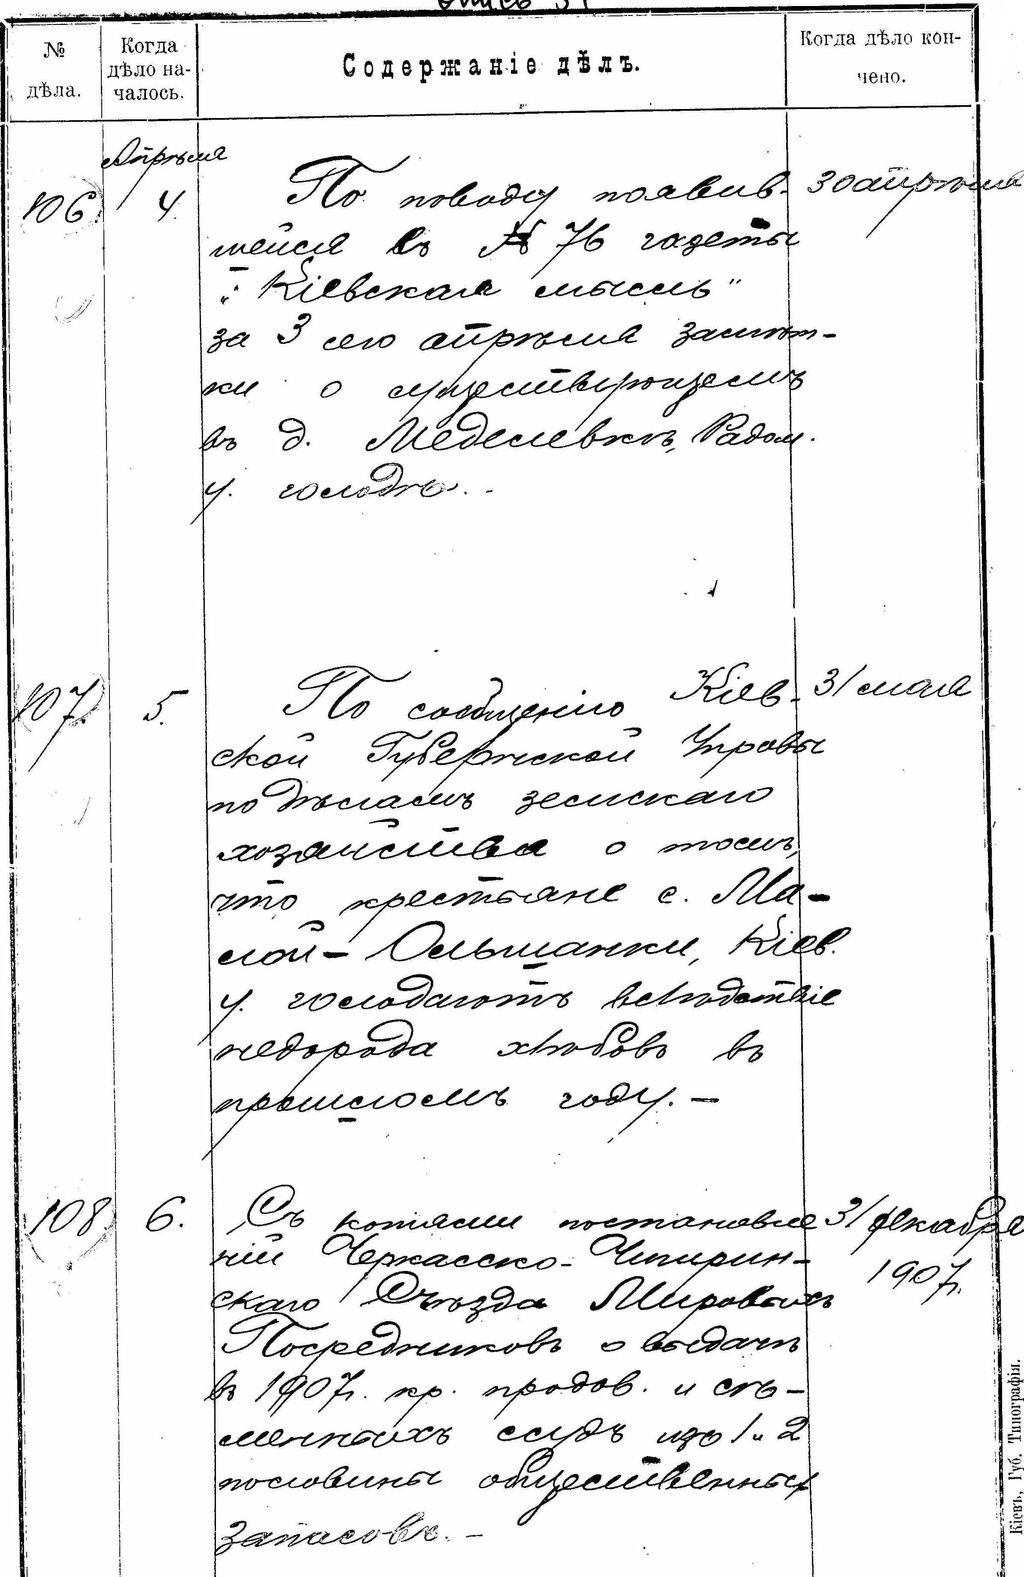 опись 31
№ дѣла.
Когда дѣло началось.
Содержаніе дѣлъ.
Когда дѣло кончено.
Апрѣля
106 4. По поводу появив- 30 апрѣля
шейся въ № 76 газеты
"Кіевская мысль"
за 3 сего апрѣля замѣт-
ки о существующемъ
въ д. Меделевкѣ, Радом.
у. голодѣ.
107. 5. По сообщенію Кіев- 31 мая
ской Губернской Управы
по дѣламъ земскаго
хозяйства о томъ,
что крестьяне с. Ма-
лой-Ольшанки, Кіев.
у. голодаютъ вслѣдствіе
недорода хлѣбовъ въ
прошломъ году. —
108 6. Съ копіями постановле 31 декабря
ній Черкасско-Чигирин- 1907г.
скаго Съѣзда Мировыхъ
Посредниковъ о выдачѣ
въ 1907г. кр. продов. и сѣ-
менныхъ ссудъ изъ 1 и 2
половины общественных
запасовъ. —
Кіевъ, Губ. Типографія.